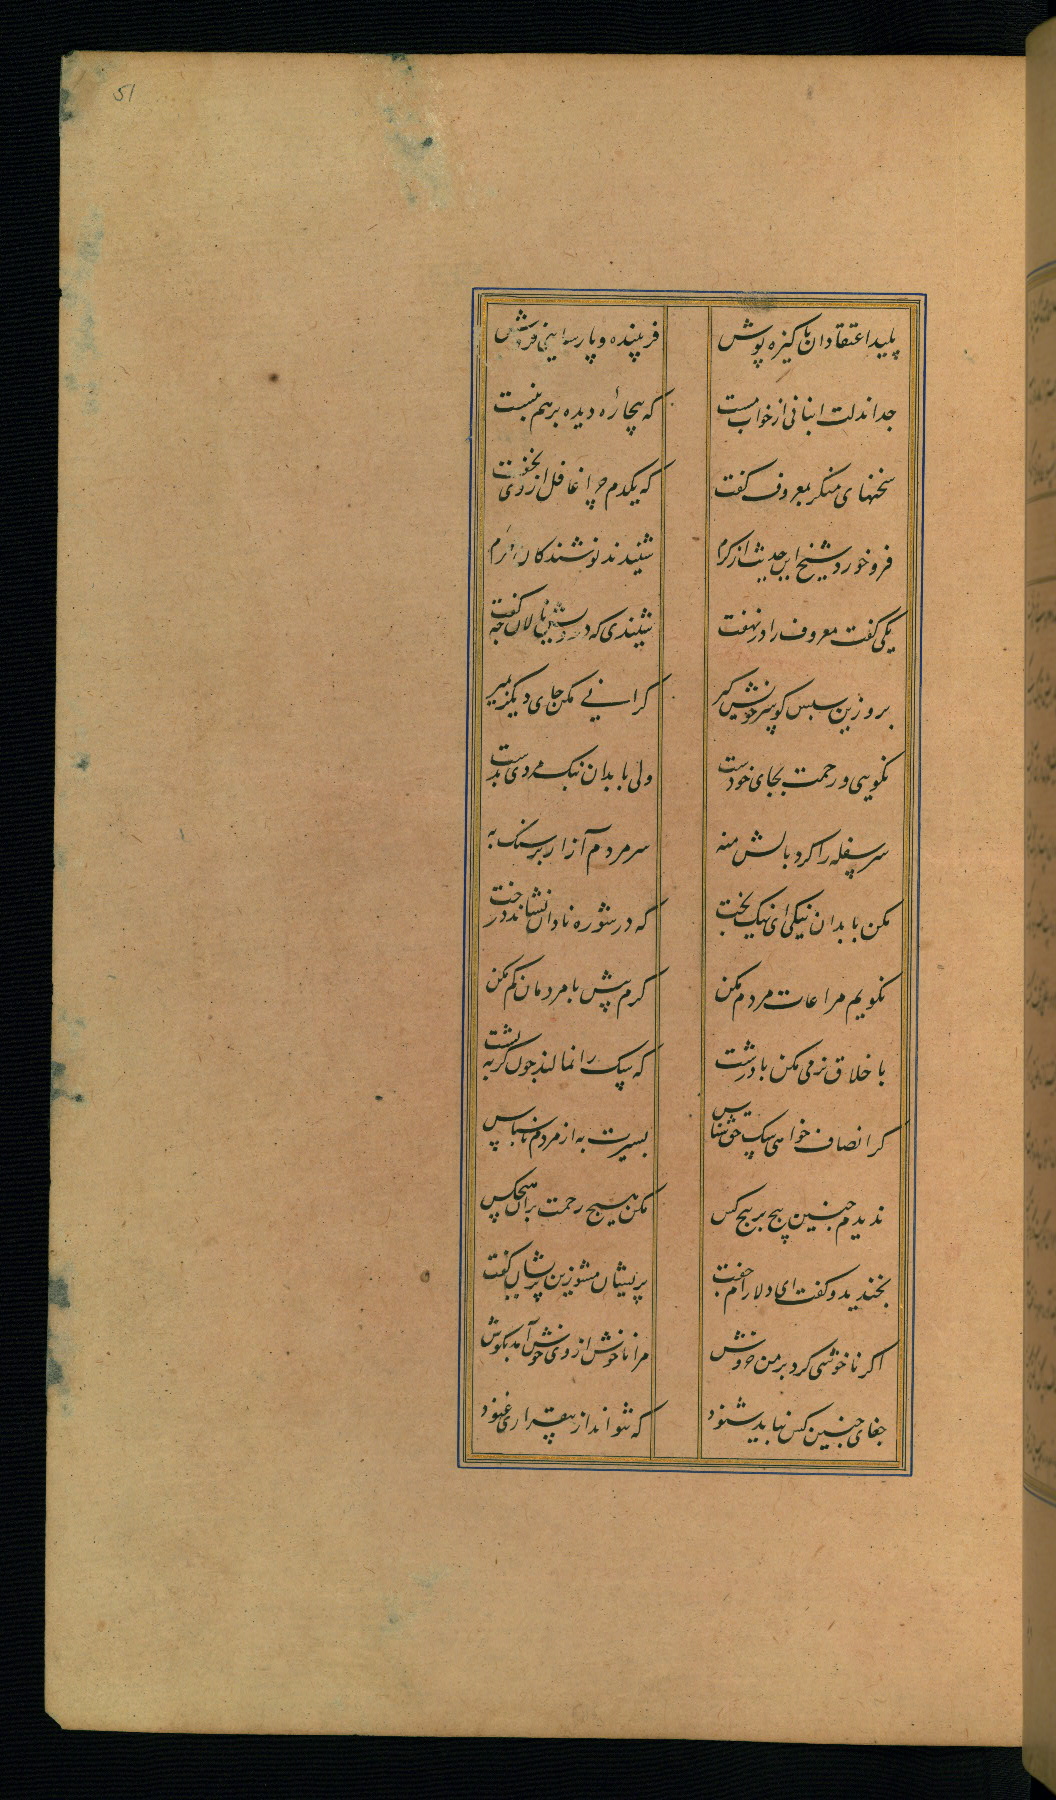 51
پلید اعتقادان پاکیزه پوش فریبنده و پارسایی فروش
چه داند لت انبانی از خواب مست که بیچارۀ دیده بر هم نبست
سخنهای منکر بمعروف گفت که یکدم چرا غافل از وی بخفت
فرو خورد شیخ این حدیث از کرم شنیدند نوشندگان حرم
یکی گفت معروف را در نهفت شنیدی که درویش نالان چه گفت
برو زین سپس گو سر خویش گیر گرانی مکن جای دیگر بمیر
نکویی و رحمت بجای خودست ولی با بدان نیک مردی بدست
سر سفله را گرد بالش منه سر مردم آزار بر سنگ به
مکن با بدان نیکی ای نیک بخت که در شوره نادان نشاند درخت
نگویم مراعات مردم مکن کرم پیش نامردمان گم مکن
باخلاق نرمی مکن با درشت که سگ را نمالند چون گربه پشت
گر انصاف خواهی سگ حق شناس بسیرت به از مردم ناسپاس
ندیدم چنین پیچ بر پیچ کس مکن هیچ رحمت بران هیچکس
بخندید و گفت ای دلارام جفت پریشان مشو زین پریشان که گفت
اگر ناخوشی کرد بر من خروش مرا ناخوش از وی خوش آمد بگوش
جفای چنین کس نباید شنود که نتواند از بیقراری غنود